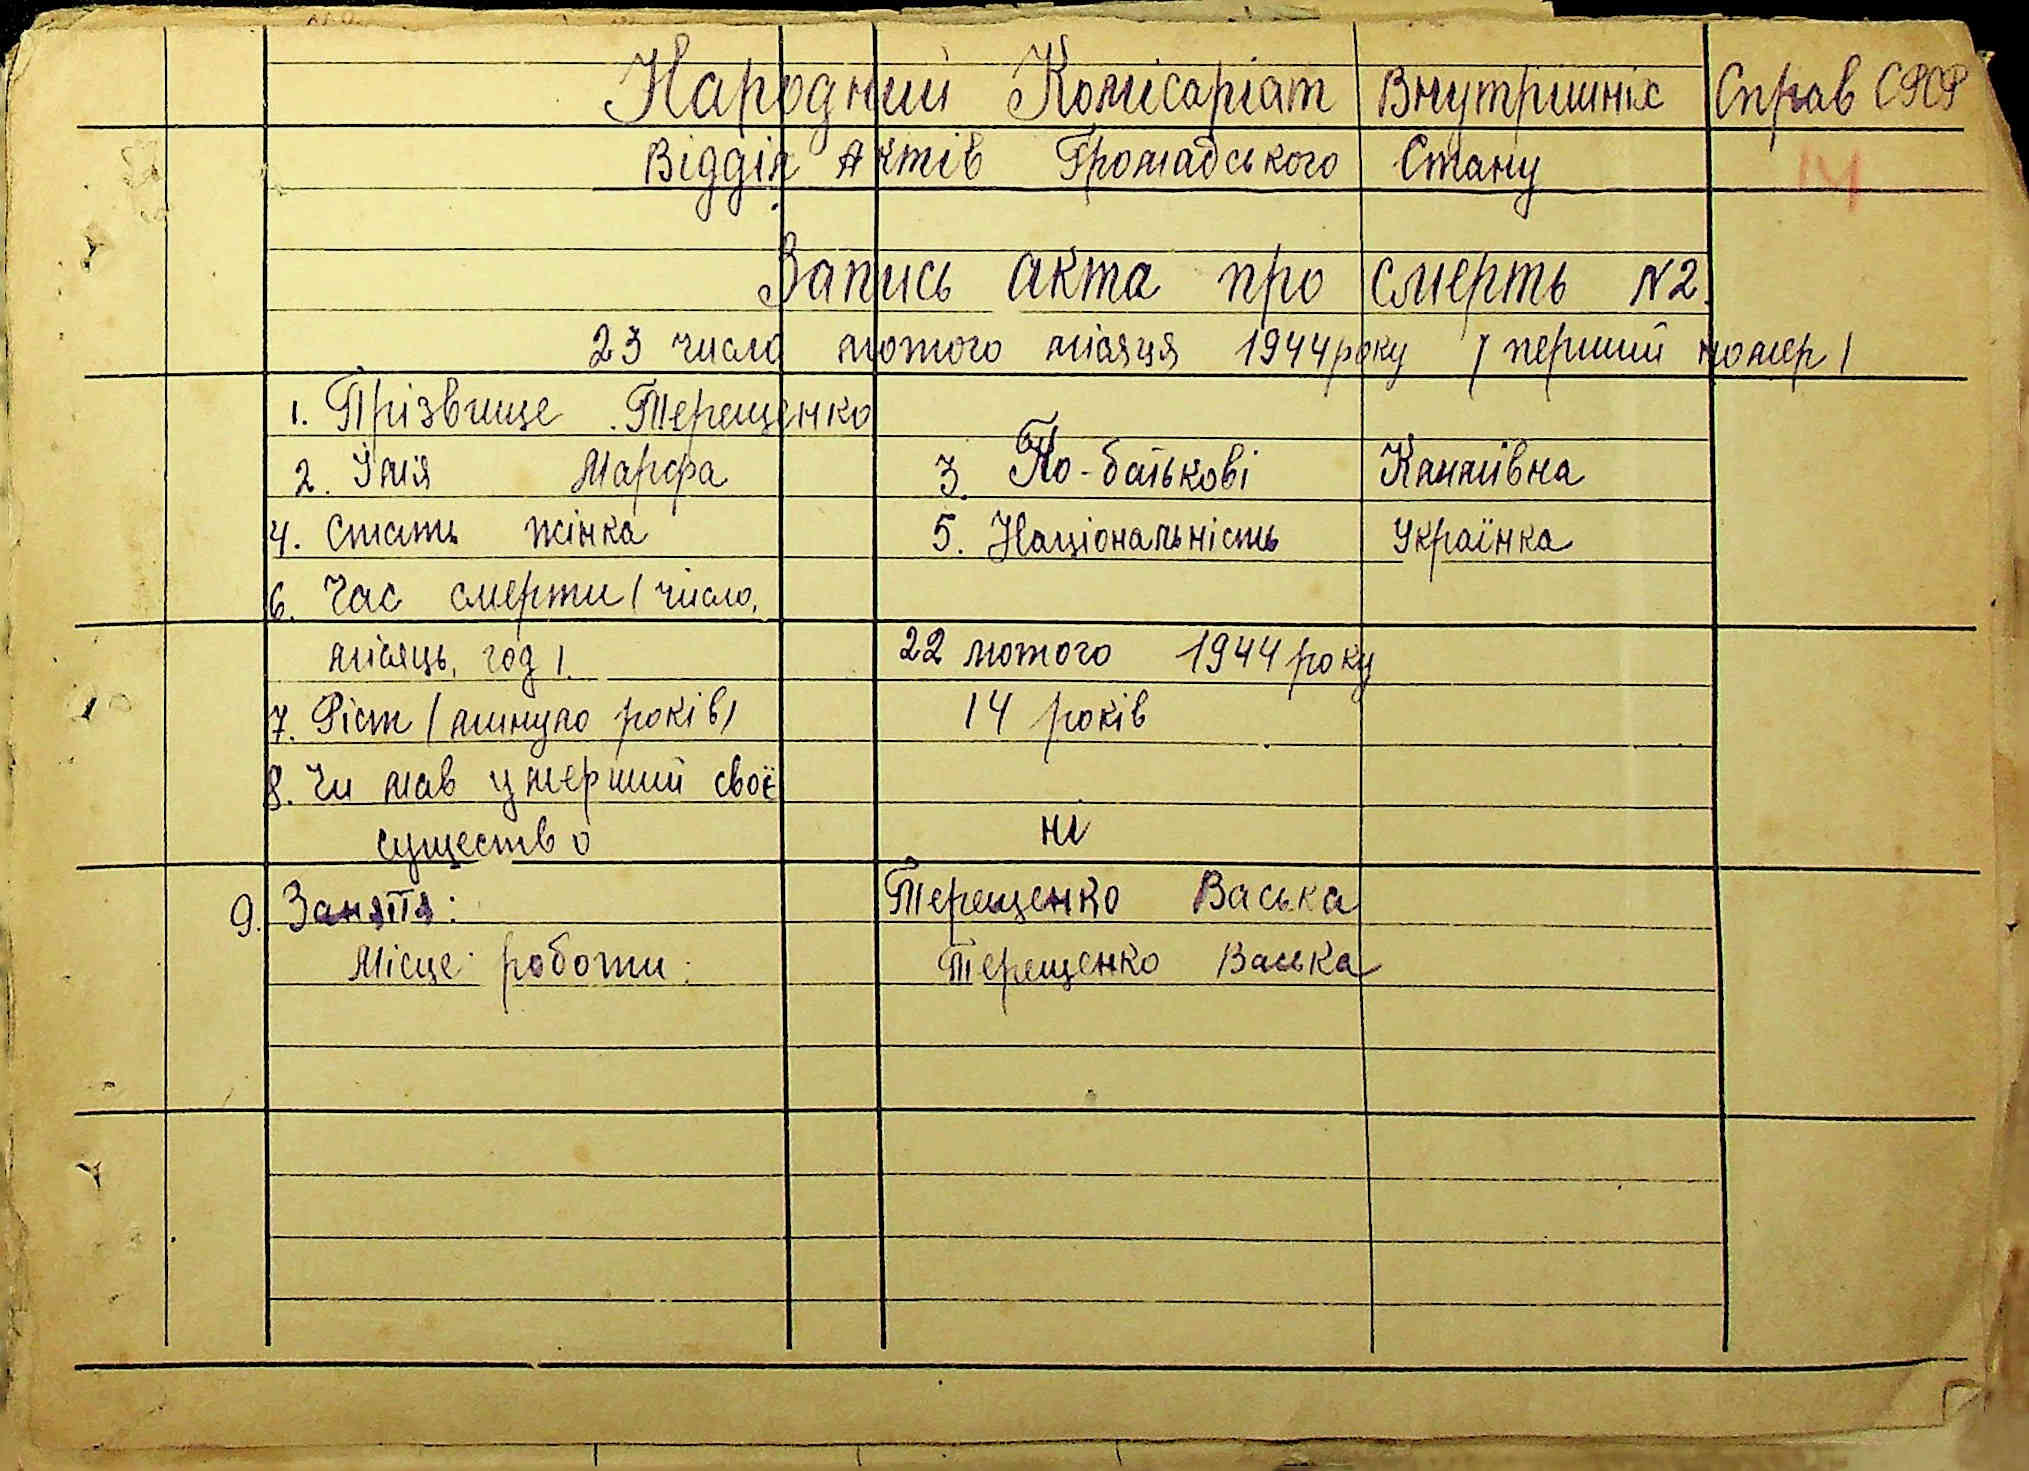 Народний Комісаріат Внутришніх Справ СРСР
Відділ Актів Громадського Стану
14
Запись акта про смерть №2.
23 число лютого місяця 1944 року / перший номер /
1. Прізвище Терещенко
2. Імя Марфа 3. По-батькові
4. Стать жінка 5. Національність Українка
6. Час смерти / число,
місяць, год /. 22 лютого 1944 року
7. Ріст / минуло років / 14 років
8. Чи мав умерший своє
существо ні
9. Заняття: Терещенко Васька
Місце роботи: Терещенко Васька